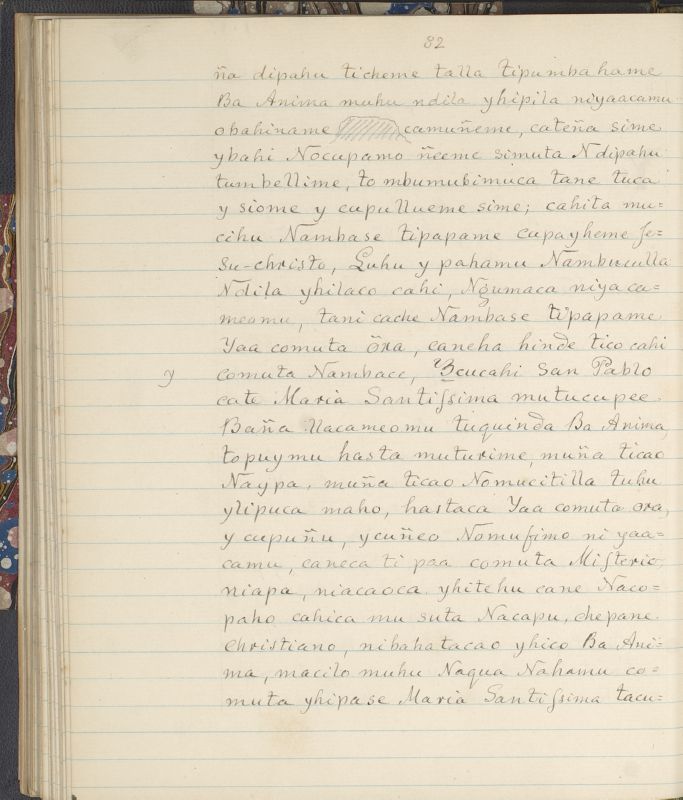 32
ña dipahu ticheme talla tipumbahame
Ba Anima muhu ndila yhipila niyaacamu
obahiname camuñeme, cateña sime
ybahi Nocupamo ñeeme simuta Ndipahu
tumbellime, to mbumubimuca tane tuca
y siome y cupullueme sime; cahita mu=
cihu Nambase tipapame cupayheme Je=
su-christo, Luhu y pahamu Namburculla
Ndila yhilaco cahi, Ngumaca niya ca=
meomu, tani cache Nambase tipapame
Yaa comuta öra, caneha hinde tico cahi
y comuta Nambacc, cucahi San Pablo
cate Maria Santiſsima mutucupee.
Baña llacameomu tuquinda Ba Anima,
topuymu hasta muturime, muña ticao
Naypa, muña ticao Nomucitilla tuhu
ylipuca maho, hastaca Yaa comuta ora,
y cupuñu, ycuñeo Nomufimo ni yaa=
camu, caneca ti paa comuta Miſterio,
niapa, niacaoca yhitehu cane Naco=
paho cahica mu suta Nacapu, chepane
christiano, nibahatacao yhico Ba Ani=
ma, macilo muhu Naqua Nahamu co=
muta yhipase Maria Santiſsima tacu=